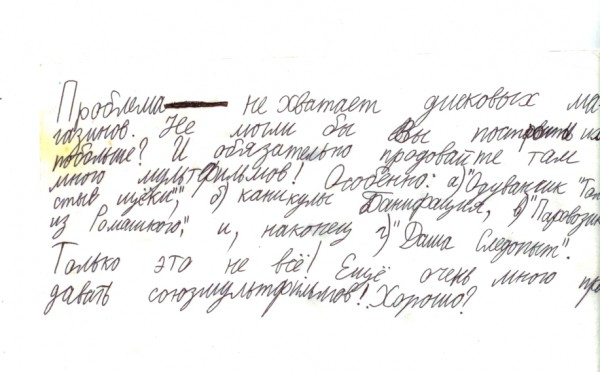 Проблема не хватает дисковых ма
газинов. Не могли бы Вы построить их
побольше? И обязательно продовайте там
много мультфильмов! Особенно: а)"Одуванчик "Тол
стые щёки"", б) каникулы Банифация, в)"Паровозик
из Ромашкого", и, наконец г)"Даша Следопыт".
Только это не всё! Ещё очень много про
давать союзмультфильмов! Хорошо?